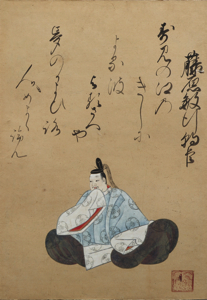 藤原敏行朝臣
寿見の江の
きしに
よる波
よるさへや
夢のかよひ路
人めよく
覧